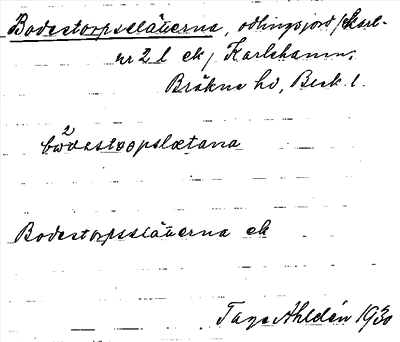 Bodestorpsslätterna, odlingsjord
nr 2 l ek, Karlshamn,
Bräkne hd, Blek. l.
Bodestorpsslätterna ek
Tage Ahldén 1930